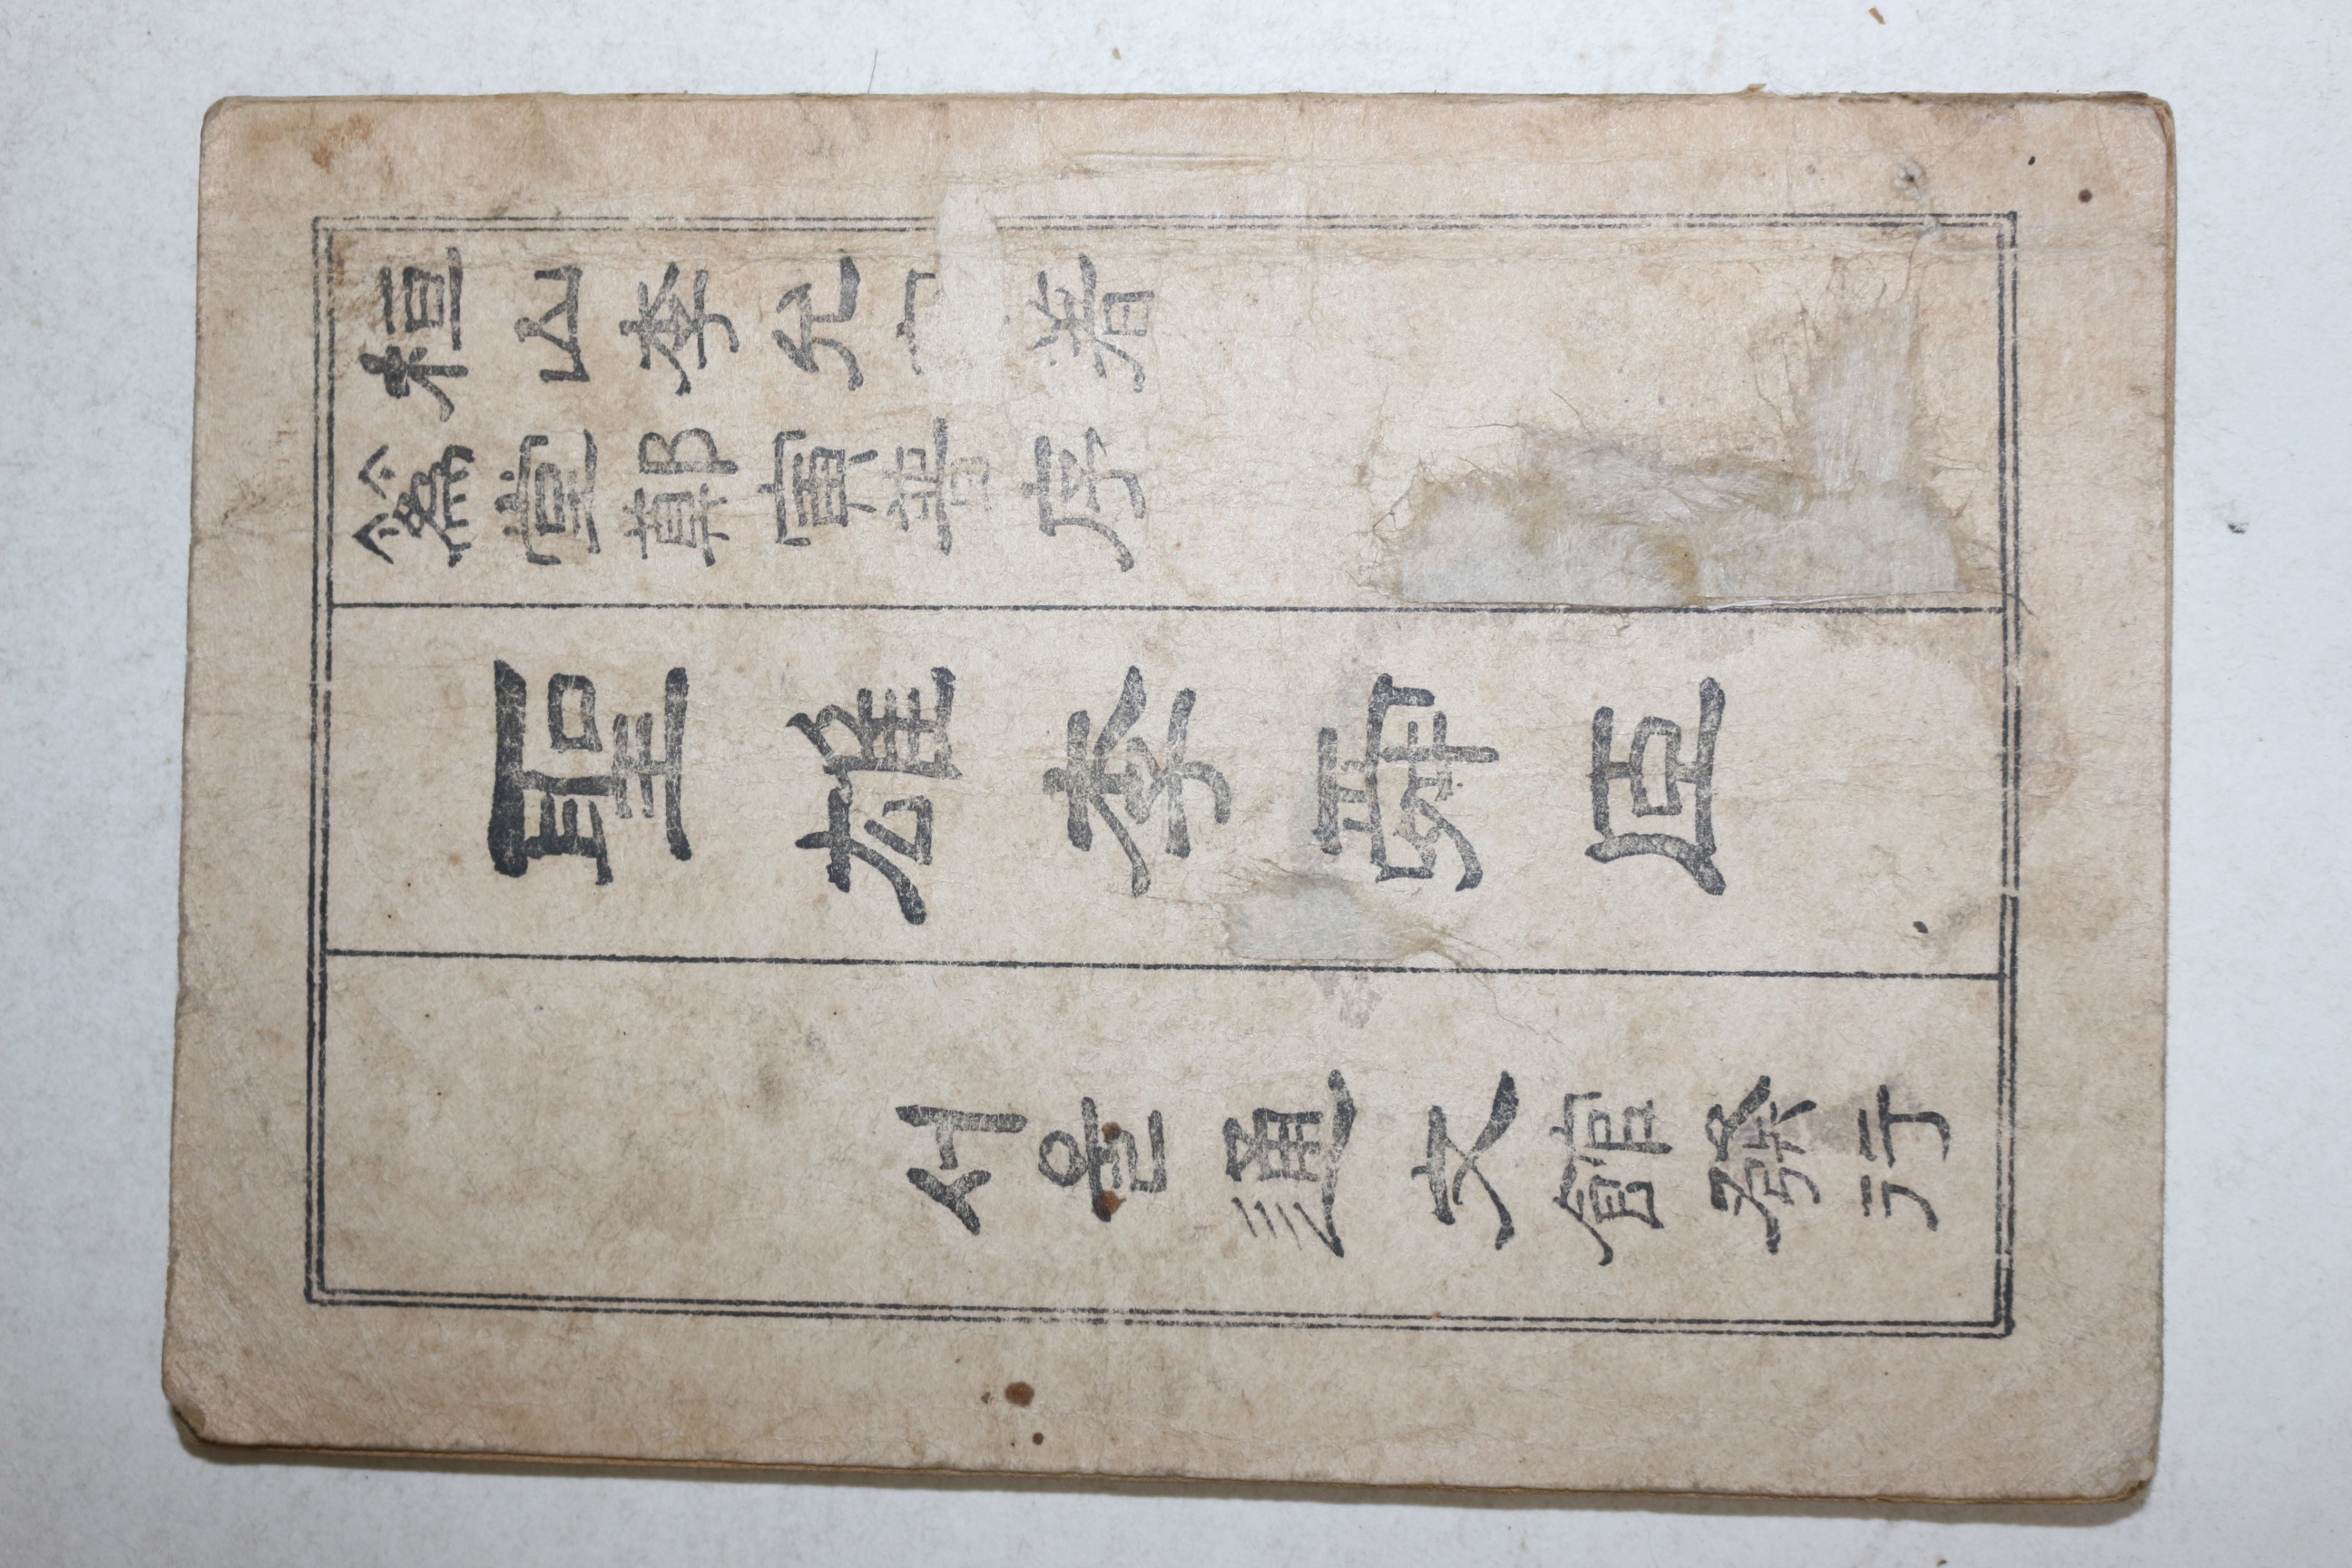 桓山李允 著
蒍堂鄭寅普序
聖雄李舜臣
서울通文館發行